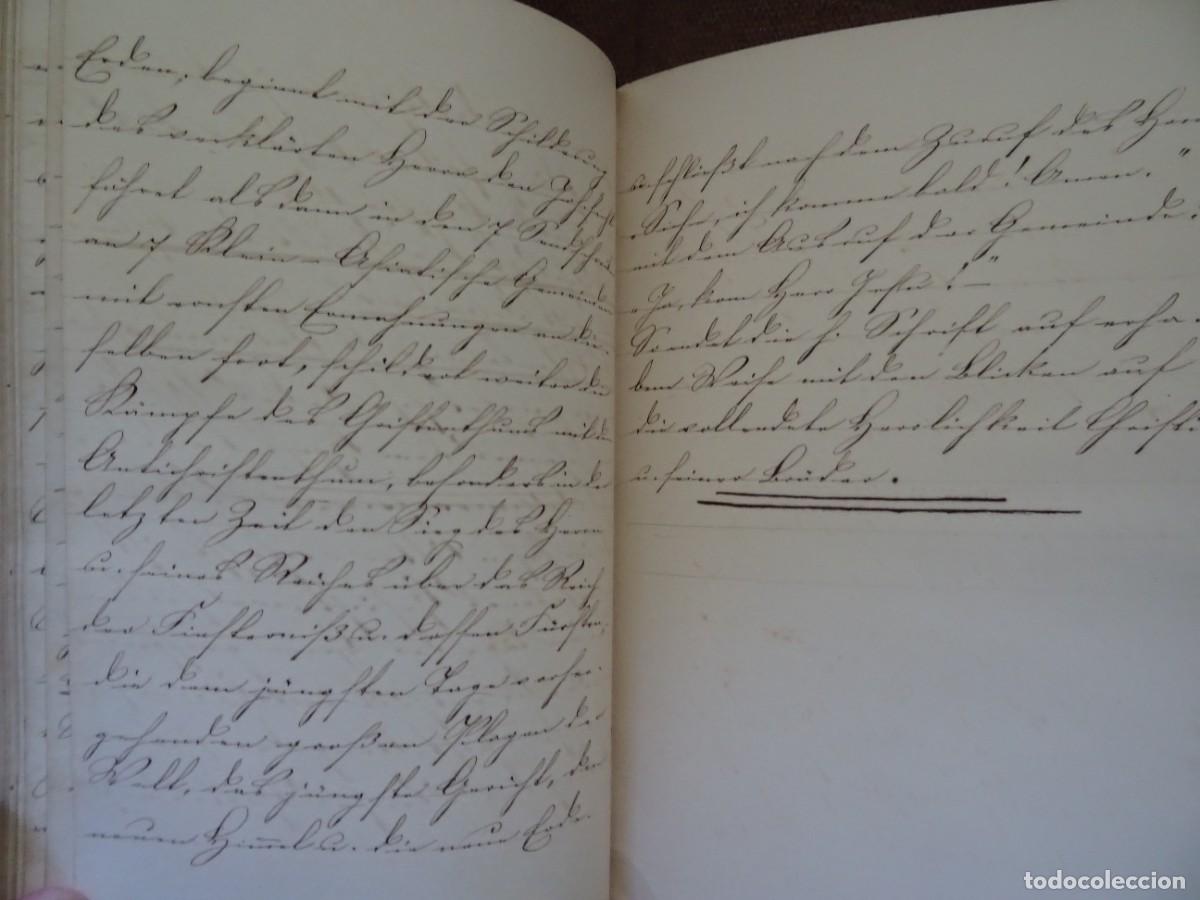 Erden, beginnt mit der Schilderung
des verklärten Herrn den
führet alsdann in den 7 Sendschrei
an 7 Klein-Asiatische Gemeinden
mit ernsten Ermahnungen an die-
selben fort, schildert weiter die
Kämpfe des Christenthums mit dem
Antichristenthum, besonders in der
letzten Zeit den Sieg des Herrn
u. seines Reiches über das Reich
der Finsterniß u. dessen Fürsten,
die dem jüngsten Tage vorher-
gehenden großen Plagen der
Welt, das jüngste Gericht, den
neuen Himmel u. die neue Erde
u. schließt nach dem Zuruf des Herrn
"Siehe, ich komme bald! Amen."
mit dem Ausruf der Gemeinde
"Ja, kom Herr Jesu!"—
So endet die h. Schrift auf erha-
bene Weise mit den Blicken auf
die vollendete Herrlichkeit Christi
u. seiner Brüder.
todocoleccion